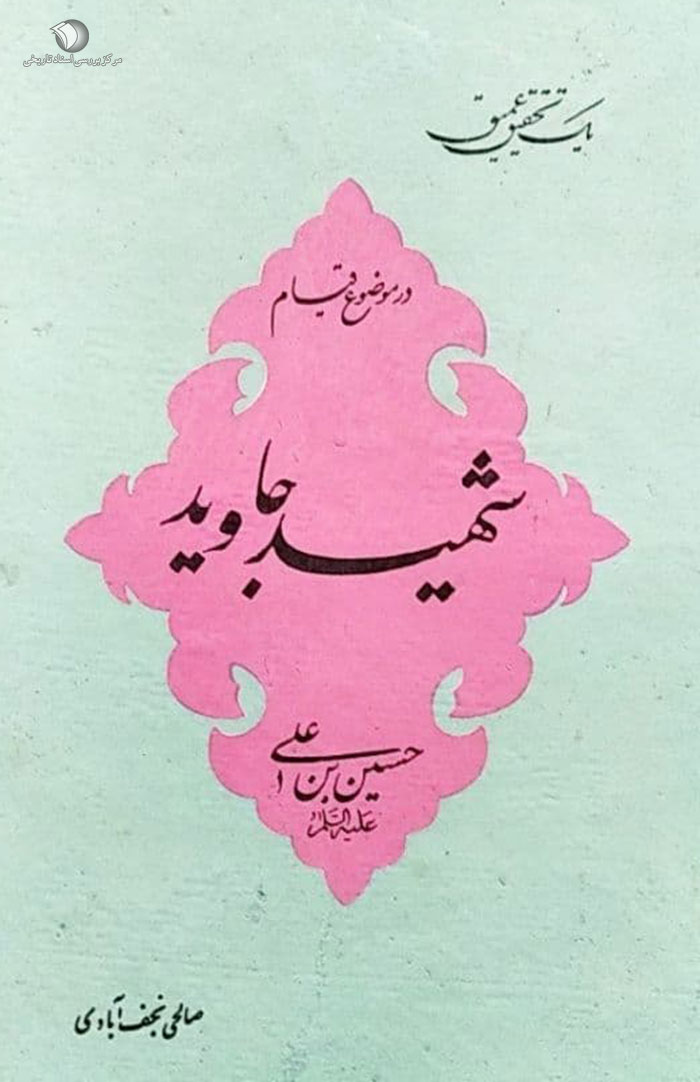 مرکز بررسی اسناد تاریخی
یک تحقیق عمیق
در موضوع قیام
شهید جاوید
حسین بن علی
علیه السلام
صالحی نجف آبادی